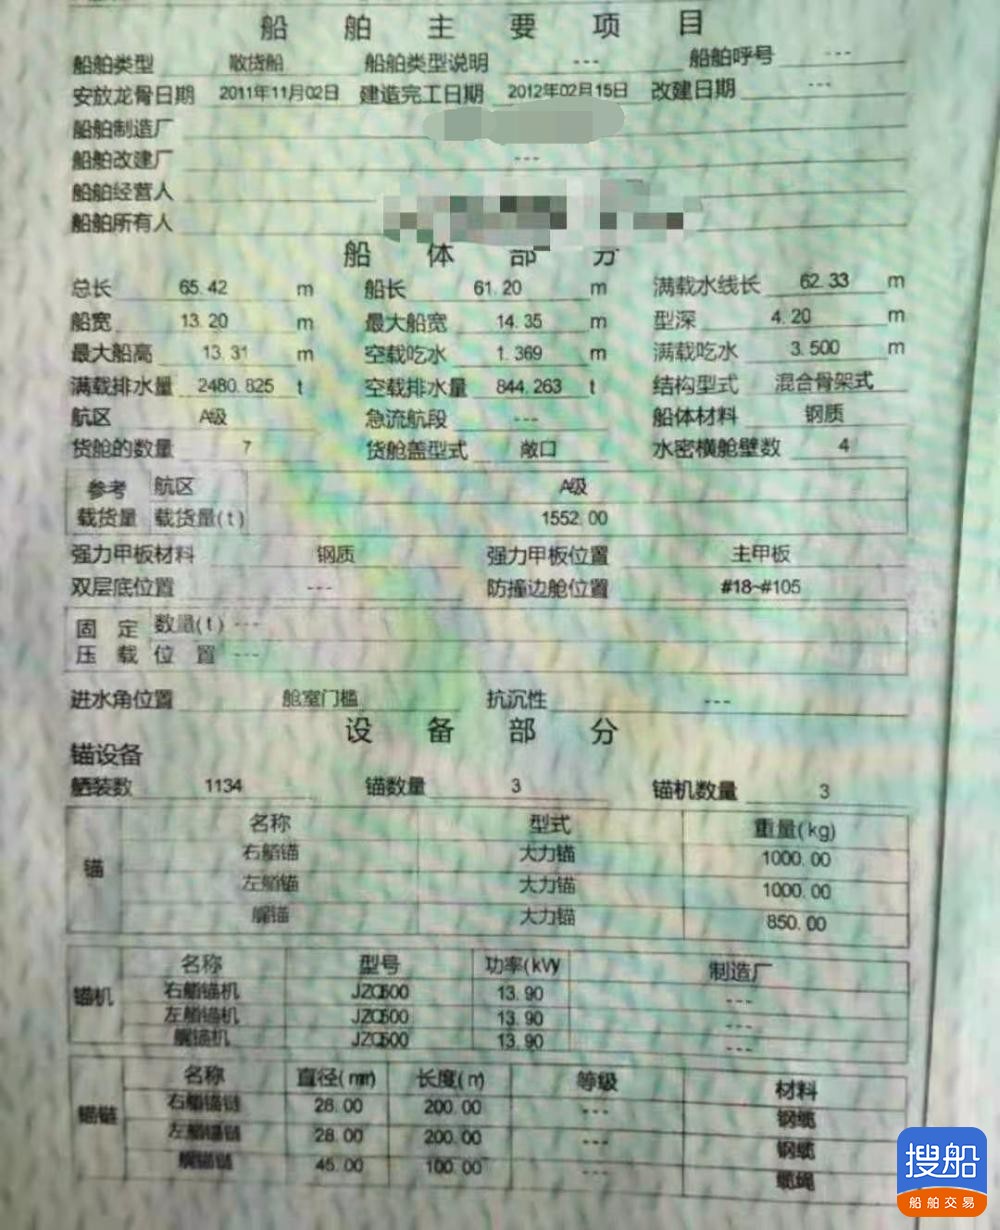 船舶主要项目
船舶类型 散货船 船舶类型说明 --- 船舶呼号 ---
安放龙骨日期 2011年11月02日 建造完工日期 2012年02月15日 改建日期 ---
船舶制造厂
船舶改建厂 ---
船舶经营人
船舶所有人
船体部分
总长 65.42 m 船长 61.20 m 满载水线长 62.33 m
船宽 13.20 m 最大船宽 14.35 m 型深 4.20 m
最大船高 13.31 m 空载吃水 1.369 m 满载吃水 3.500 m
满载排水量 2480.825 t 空载排水量 844.263 t 结构型式 混合骨架式
航区 A级 急流航段 --- 船体材料 钢质
货舱的数量 7 货舱盖型式 敞口 水密横舱壁数 4
参考 航区 A级
载货量 载货量(t) 1552.00
强力甲板材料 钢质 强力甲板位置 主甲板
双层底位置 --- 防撞边舱位置 #18~#105
固定 数量(t) ---
压载 位置 ---
进水角位置 舱室门槛 抗沉性 ---
设备部分
锚设备
舾装数 1134 锚数量 3 锚机数量 3
名称 型式 重量(kg)
右艏锚 大力锚 1000.00
锚
左艏锚 大力锚 1000.00
艉锚 大力锚 850.00
名称 型号 功率(kW) 制造厂
锚机 右艏锚机 JZQ500 13.90 ---
左艏锚机 JZQ500 13.90 ---
艉锚机 JZQ500 13.90 ---
名称 直径(mm) 长度(m) 等级 材料
锚链 右艏锚链 28.00 200.00 --- 钢缆
左艏锚链 28.00 200.00 --- 钢缆
艉锚链 45.00 100.00 --- 缆绳
搜船
船舶交易